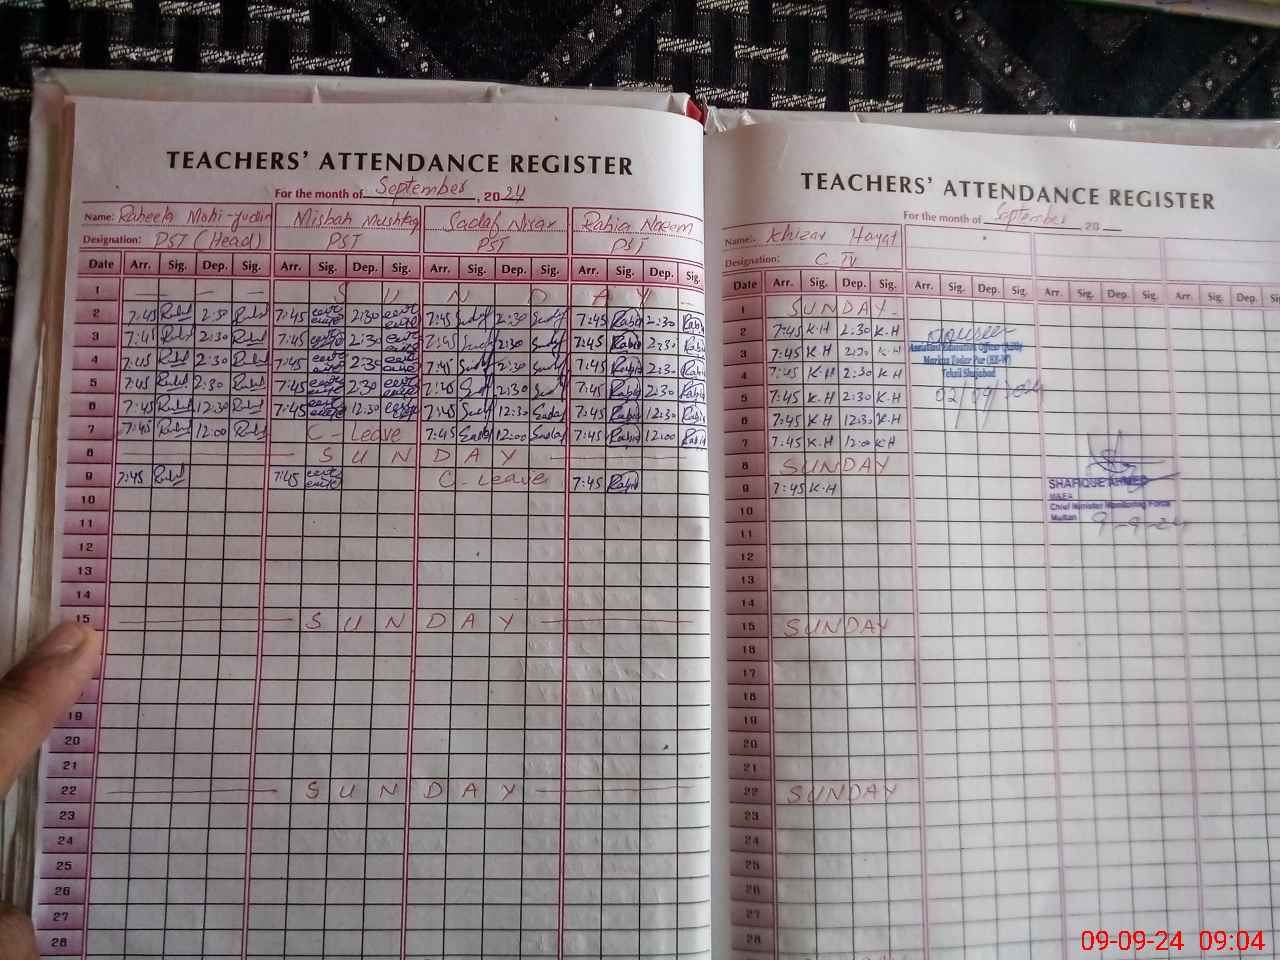 TEACHERS' ATTENDANCE REGISTER
For the month of September, 2024
Name: Raheela Mohi-yudin Misbah Mushtaq Sadaf Nisar Rabia Naeem
Designation: PST (Head) PST PST PST
Date Arr. Sig. Dep. Sig. Arr. Sig. Dep. Sig. Arr. Sig. Dep. Sig. Arr. Sig. Dep. Sig.
1 S U N D A Y
2 7:45 2:30 7:45 2:30 7:45 2:30 7:45 Rabia 2:30 Rabia
3 7:45 2:30 7:45 2:30 7:45 2:30 7:45 Rabia 2:30 Rabia
4 7:45 2:30 7:45 2:30 7:45 2:30 7:45 Rabia 2:30 Rabia
5 7:45 2:30 7:45 2:30 7:45 2:30 7:45 Rabia 2:30 Rabia
6 7:45 12:30 7:45 12:30 7:45 12:30 Sadaf 7:45 Rabia 12:30 Rabia
7 7:45 12:00 C-Leave 7:45 Sadaf 12:00 Sadaf 7:45 Rabia 12:00 Rabia
8 S U N D A Y
9 7:45 7:45 C-Leave 7:45 Rabia
10
11
12
13
14
15 S U N D A Y
19
20
21
22 S U N D A Y
23
24
25
26
27
28
TEACHERS' ATTENDANCE REGISTER
For the month of September 20
Name: Khizar Hayat
Designation: C IV
Date Arr. Sig. Dep. Sig. Arr. Sig. Dep. Sig. Arr. Sig. Dep. Sig. Arr. Sig. Dep.
1 SUNDAY
2 7:45 K.H 2:30 K.H
3 7:45 K.H 2:30 K.H
4 7:45 K.H 2:30 K.H
5 7:45 K.H 2:30 K.H
6 7:45 K.H 12:30 K.H
7 7:45 K.H 12:00 K.H
8 SUNDAY
9 7:45 K.H
10
11
12
13
14
15 SUNDAY
16
17
18
19
20
21
22 SUNDAY
23
24
25
26
27
28
Tehsil Shujabad
02/09/2024
SHAFIQUE AHMED
M&EA
Chief Minister Monitoring Force
Multan 9-9-24
09-09-24 09:04